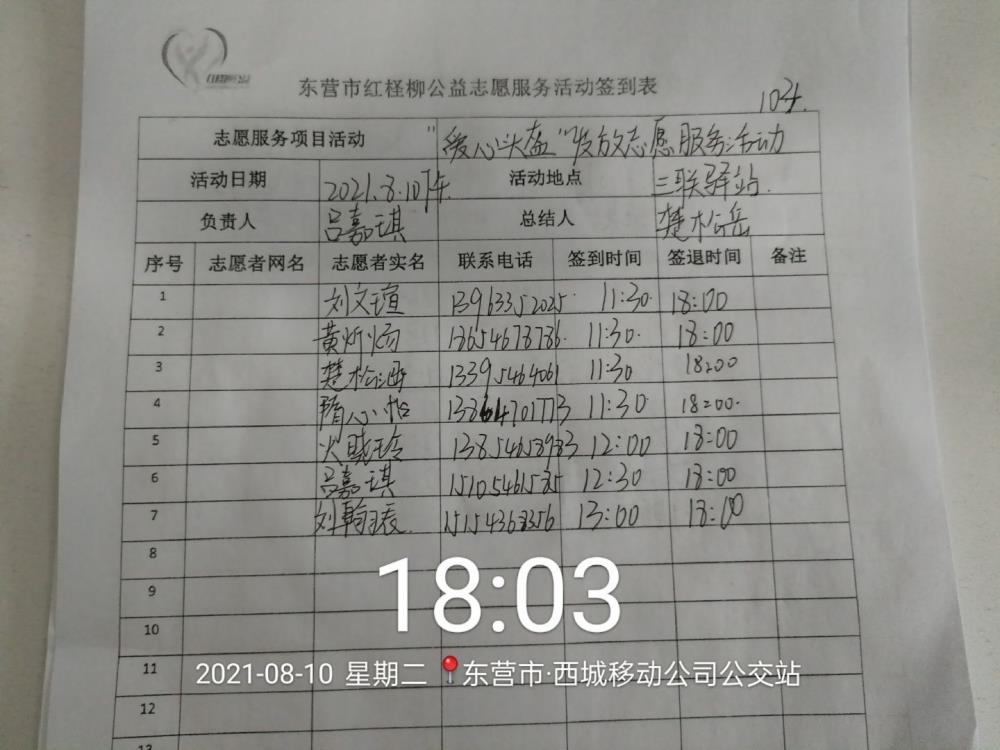 东营市红柽柳公益志愿服务活动签到表
104.
志愿服务项目活动 "爱心头盔"发放志愿服务活动
活动日期 2021.8.10下午. 活动地点 三联驿站.
负责人 吕嘉琪 总结人 楚松岳
序号 志愿者网名 志愿者实名 联系电话 签到时间 签退时间 备注
1 刘文瑄 13963352025 11:30 18:00
2 黄炘炀 18654678786 11:30 18:00
3 楚松涵 13395464061 11:30 18:00
4 隋心怡 13864701773 11:30 18:00
5 火晓玲 13854658983 12:00 18:00
6 吕嘉琪 15105461585 12:30 18:00
7 刘翰 15154368356 13:00 18:00
8
9
10
11
12
13
18:03
2021-08-10 星期二 东营市·西城移动公司公交站